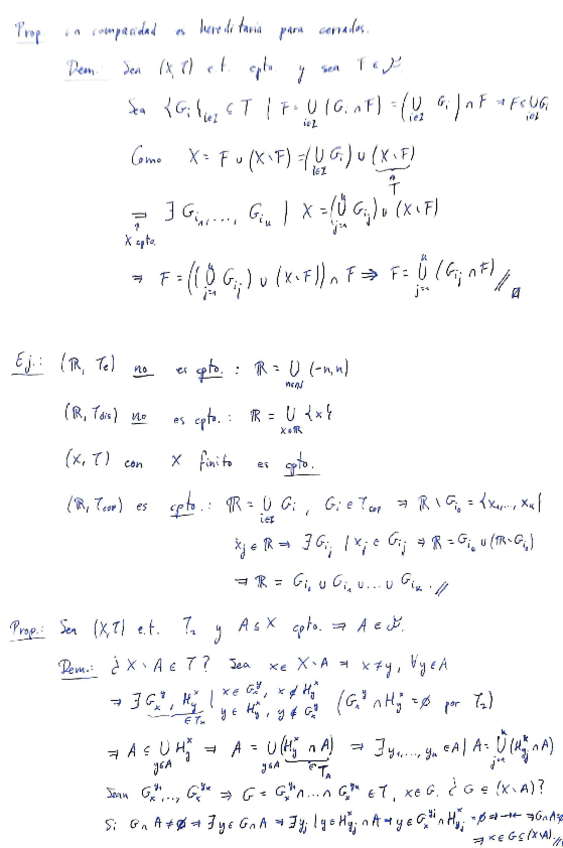 Prop. La compacidad es hereditaria para cerrados.
Dem.: Sea (X,T) e.t. cpto. y sea F ∈ 𝓕
Sea {G_i}_{i∈I} ⊆ T | F = ⋃_{i∈I} (G_i ∩ F) = (⋃_{i∈I} G_i) ∩ F ⇒ F ⊆ ⋃_{i∈I} G_i
Como X = F ∪ (X∖F) = (⋃_{i∈I} G_i) ∪ (X∖F)
T
⇒ ∃ G_{i_1}, ..., G_{i_n} | X = (⋃_{j=1}^n G_{i_j}) ∪ (X∖F)
X cpto.
⇒ F = ((⋃_{j=1}^n G_{i_j}) ∪ (X∖F)) ∩ F ⇒ F = ⋃_{j=1}^n (G_{i_j} ∩ F) //
Ej.: (ℝ, T_e) no es cpto.: ℝ = ⋃_{n∈ℕ} (-n,n)
(ℝ, T_dis) no es cpto.: ℝ = ⋃_{x∈ℝ} {x}
(X,T) con X finito es cpto.
(ℝ, T_cof) es cpto.: ℝ = ⋃_{i∈I} G_i, G_i ∈ T_cof ⇒ ℝ∖G_{i_0} = {x_1,...,x_k}
x_j ∈ ℝ ⇒ ∃ G_{i_j} | x_j ∈ G_{i_j} ⇒ ℝ = G_{i_0} ∪ (ℝ∖G_{i_0})
⇒ ℝ = G_{i_0} ∪ G_{i_1} ∪ ... ∪ G_{i_k}. //
Prop.: Sea (X,T) e.t. T_2 y A ⊆ X cpto. ⇒ A ∈ 𝓕.
Dem.: ¿X∖A ∈ T? Sea x ∈ X∖A ⇒ x ≠ y, ∀y∈A
⇒ ∃ G_x^y, H_y^x | x ∈ G_x^y, x ∉ H_y^x y ∈ H_y^x, y ∉ G_x^y (G_x^y ∩ H_y^x = ∅ por T_2)
⇒ A ⊆ ⋃_{y∈A} H_y^x ⇒ A = ⋃_{y∈A} (H_y^x ∩ A) ⇒ ∃ y_1,..., y_k ∈ A | A = ⋃_{j=1}^k (H_{y_j}^x ∩ A)
∈ T_A
Sean G_x^{y_1}, ..., G_x^{y_k} ⇒ G = G_x^{y_1} ∩ ... ∩ G_x^{y_k} ∈ T, x ∈ G. ¿G ⊆ (X∖A)?
Si G ∩ A ≠ ∅ ⇒ ∃ y ∈ G ∩ A ⇒ ∃ y_j | y ∈ H_{y_j}^x ∩ A ⇒ y ∈ G_x^{y_j} ∩ H_{y_j}^x = ∅ ⇒ →← ⇒ G∩A = ∅
⇒ x ∈ G ⊆ (X∖A). //